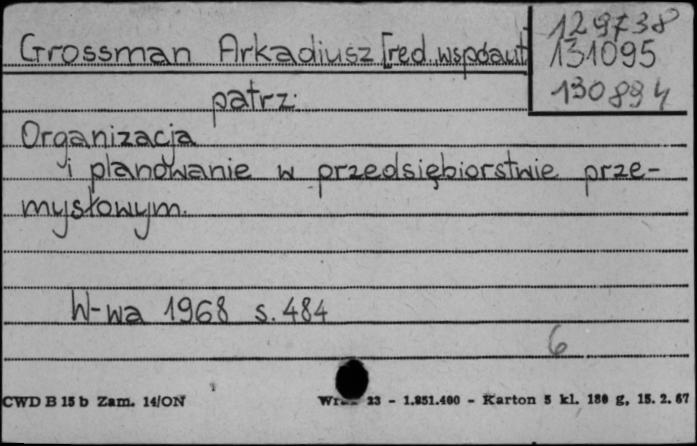 129738
Grossman Arkadiusz [red., współaut.]
131095
130894
patrz:
Organizacja
i planowanie w przedsiębiorstwie prze-
mysłowym.
W-wa 1968 s. 484
6
CWD B 15 b Zam. 14/ON 23 - 1.851.400 - Karton 5 kl. 180 g, 15. 2. 67